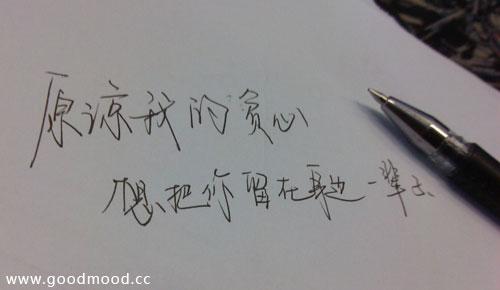 原谅我的贪心
想把你留在身边一辈子
www.goodmood.cc